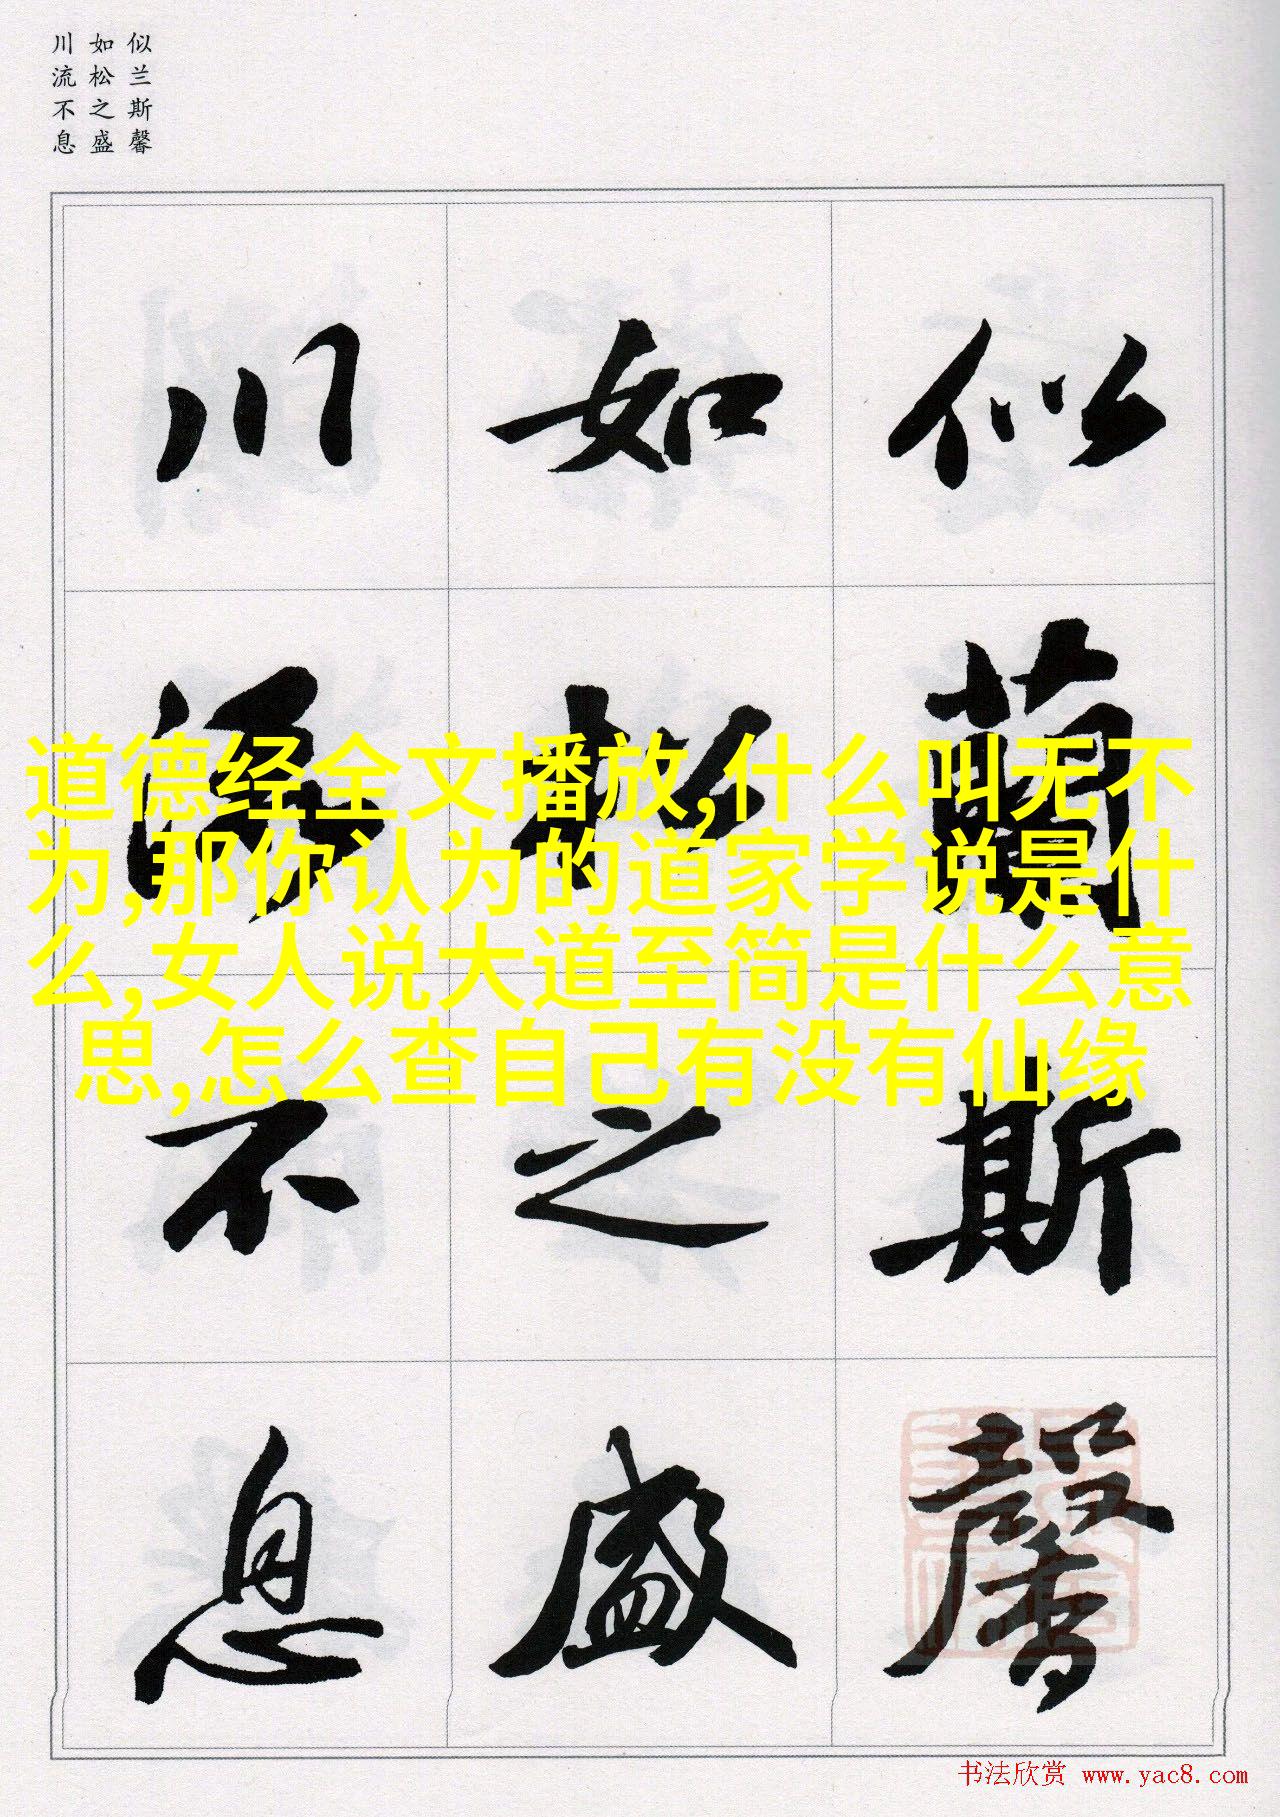 似兰斯馨
如松之盛
川流不息
似蘭斯馨
如松之盛
川流不息
道德经全文播放,什么叫无不
为,那你认为的道家学说是什
么,女人说大道至简是什么意
思,怎么查自己有没有仙缘
书法欣赏 www.yac8.com